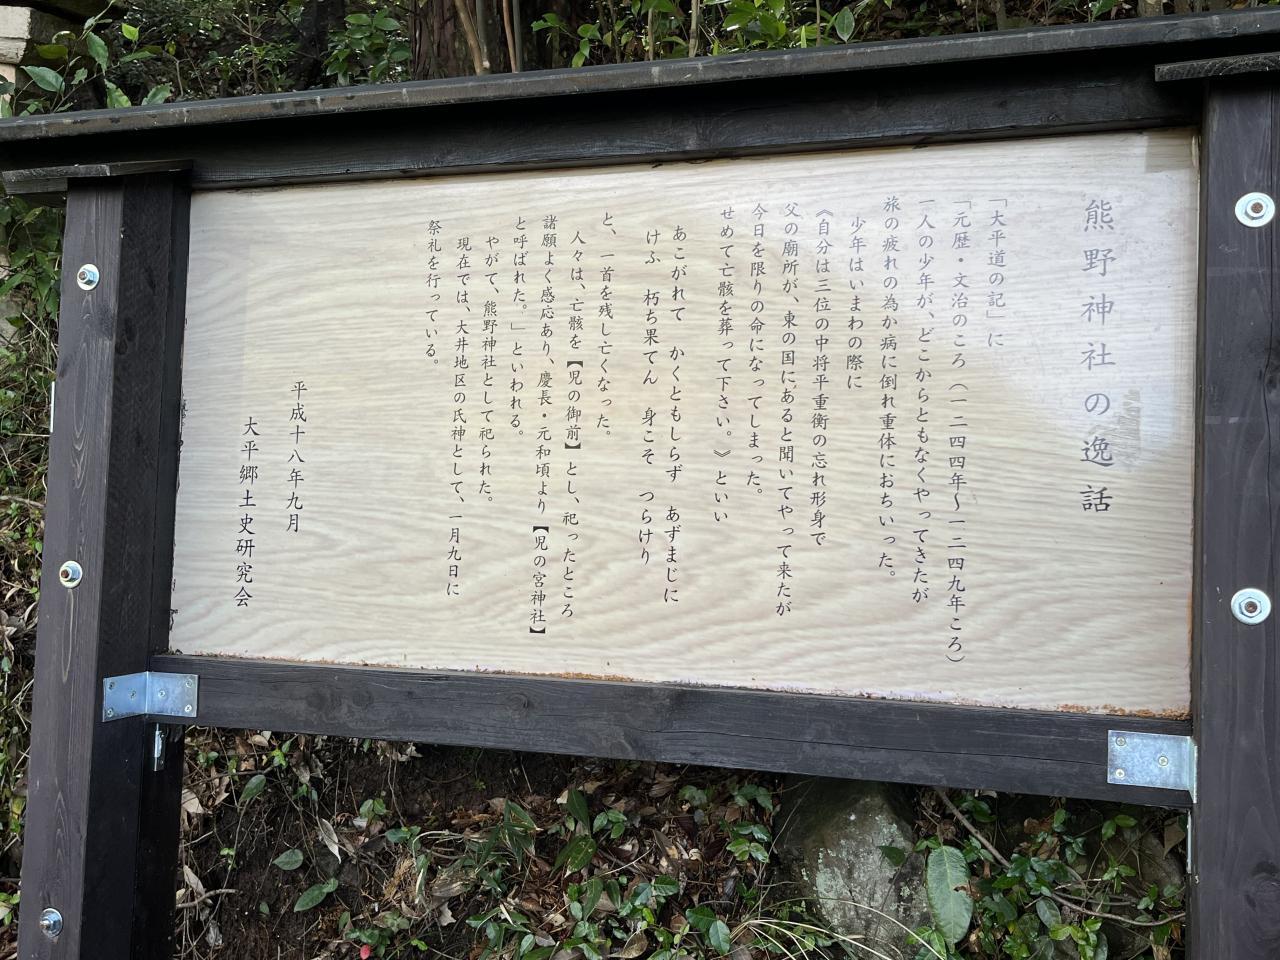 熊野神社の逸話
「大平道の記」に
「元歴・文治のころ（一二四四年～一二四九年ころ）
一人の少年が、どこからともなくやってきたが
旅の疲れの為か病に倒れ重体におちいった。
少年はいまわの際に
《自分は三位の中将平重衡の忘れ形身で
父の廟所が、東の国にあると聞いてやって来たが
今日を限りの命になってしまった。
せめて亡骸を葬って下さい。》といい
あこがれて　かくともしらず　あずまじに
けふ　朽ち果てん　身こそ　つらけり
と、一首を残し亡くなった。
人々は、亡骸を【児の御前】とし、祀ったところ
諸願よく感応あり、慶長・元和頃より【児の宮神社】
と呼ばれた。」といわれる。
やがて、熊野神社として祀られた。
現在では、大井地区の氏神として、一月九日に
祭礼を行っている。
平成十八年九月
大平郷土史研究会